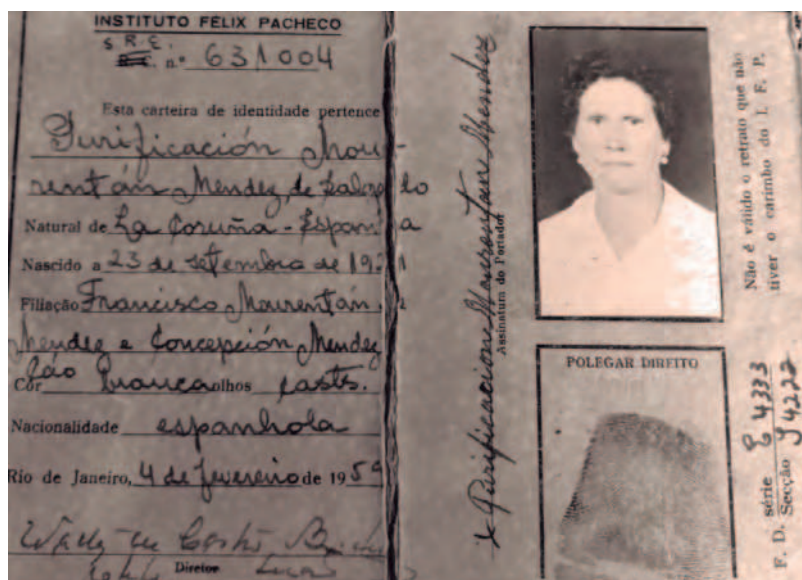 INSTITUTO FÉLIX PACHECO
S. R. E.
n.º 631004
Esta carteira de identidade pertence
Purificación Mou-
rentán Mendez, de
Natural de La Coruña - Espanha
Nascido a 23 de setembro de 19
Filiação Francisco Mourentán
Mendez e Concepción Mendez
Cor branca olhos casts.
Nacionalidade espanhola
Rio de Janeiro, 4 de fevereiro de 1959
Diretor
Purificacion Mourentan Mendez
Assinatura do Portador
POLEGAR DIREITO
Não é válido o retrato que não
tiver o carimbo do I. F. P.
F. D. série E 4333
Secção I 4222